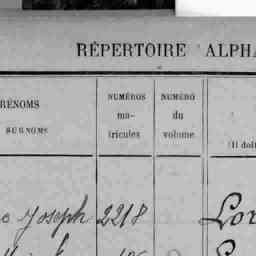 RÉPERTOIRE ALPHA
RÉNOMS
SURNOMS
NUMÉROS
ma-
tricules
NUMÉRO
du
volume
(Il doit
Joseph 2218